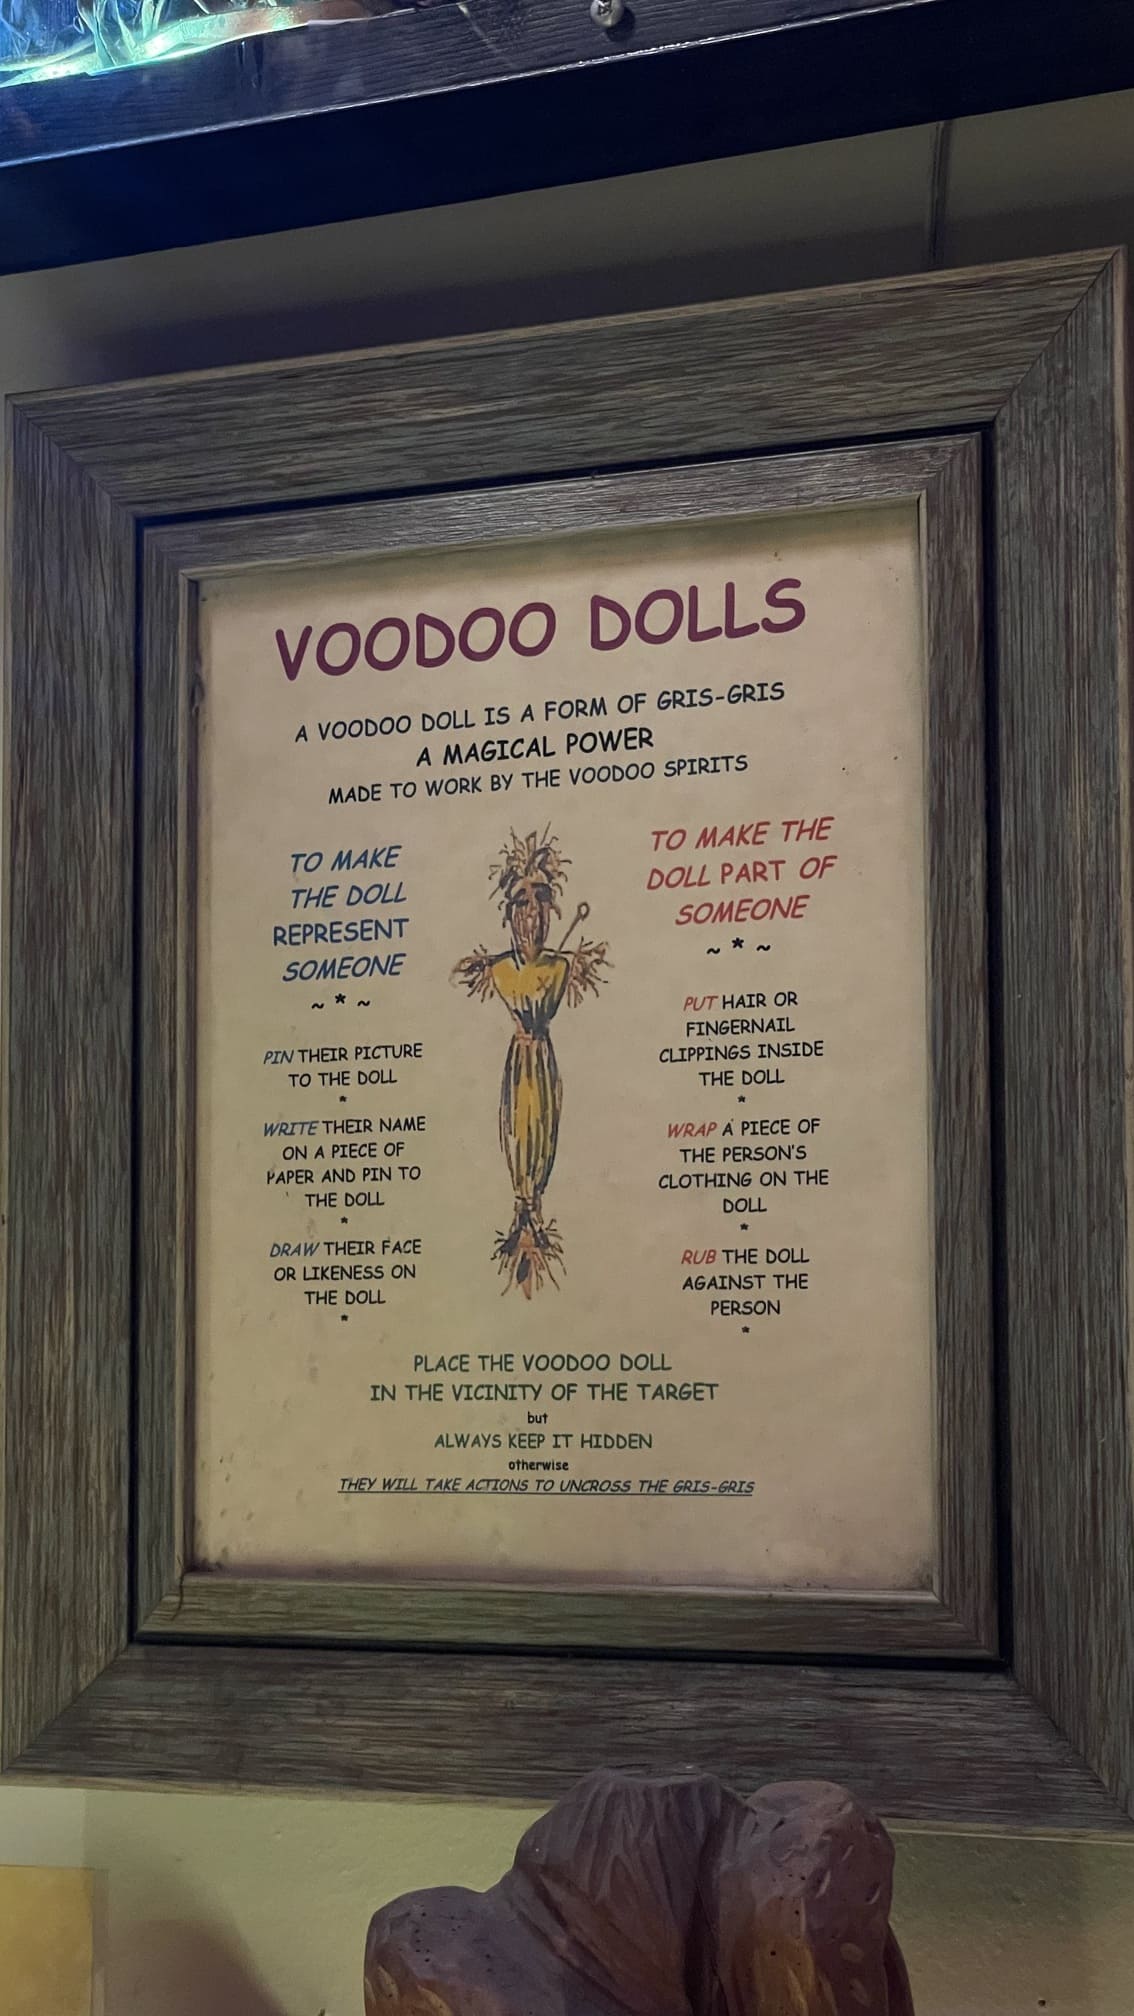 VOODOO DOLLS
A VOODOO DOLL IS A FORM OF GRIS-GRIS
A MAGICAL POWER
MADE TO WORK BY THE VOODOO SPIRITS
TO MAKE
THE DOLL
REPRESENT
SOMEONE
~ * ~
PIN THEIR PICTURE
TO THE DOLL
*
WRITE THEIR NAME
ON A PIECE OF
PAPER AND PIN TO
THE DOLL
*
DRAW THEIR FACE
OR LIKENESS ON
THE DOLL
*
TO MAKE THE
DOLL PART OF
SOMEONE
~ * ~
PUT HAIR OR
FINGERNAIL
CLIPPINGS INSIDE
THE DOLL
*
WRAP A PIECE OF
THE PERSON'S
CLOTHING ON THE
DOLL
*
RUB THE DOLL
AGAINST THE
PERSON
*
PLACE THE VOODOO DOLL
IN THE VICINITY OF THE TARGET
but
ALWAYS KEEP IT HIDDEN
otherwise
THEY WILL TAKE ACTIONS TO UNCROSS THE GRIS-GRIS